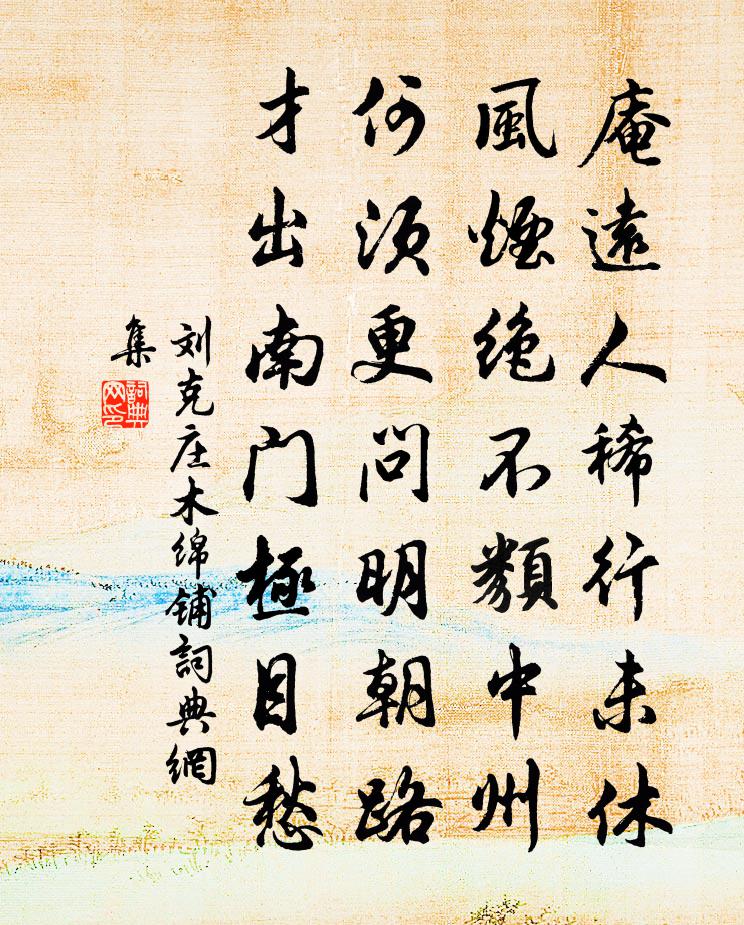 庵遠人稀行未休
風煙絶不類中州
何須更問明朝路
才出南門極目愁
刘克庄木绵铺詞典網
集
詞典
网印